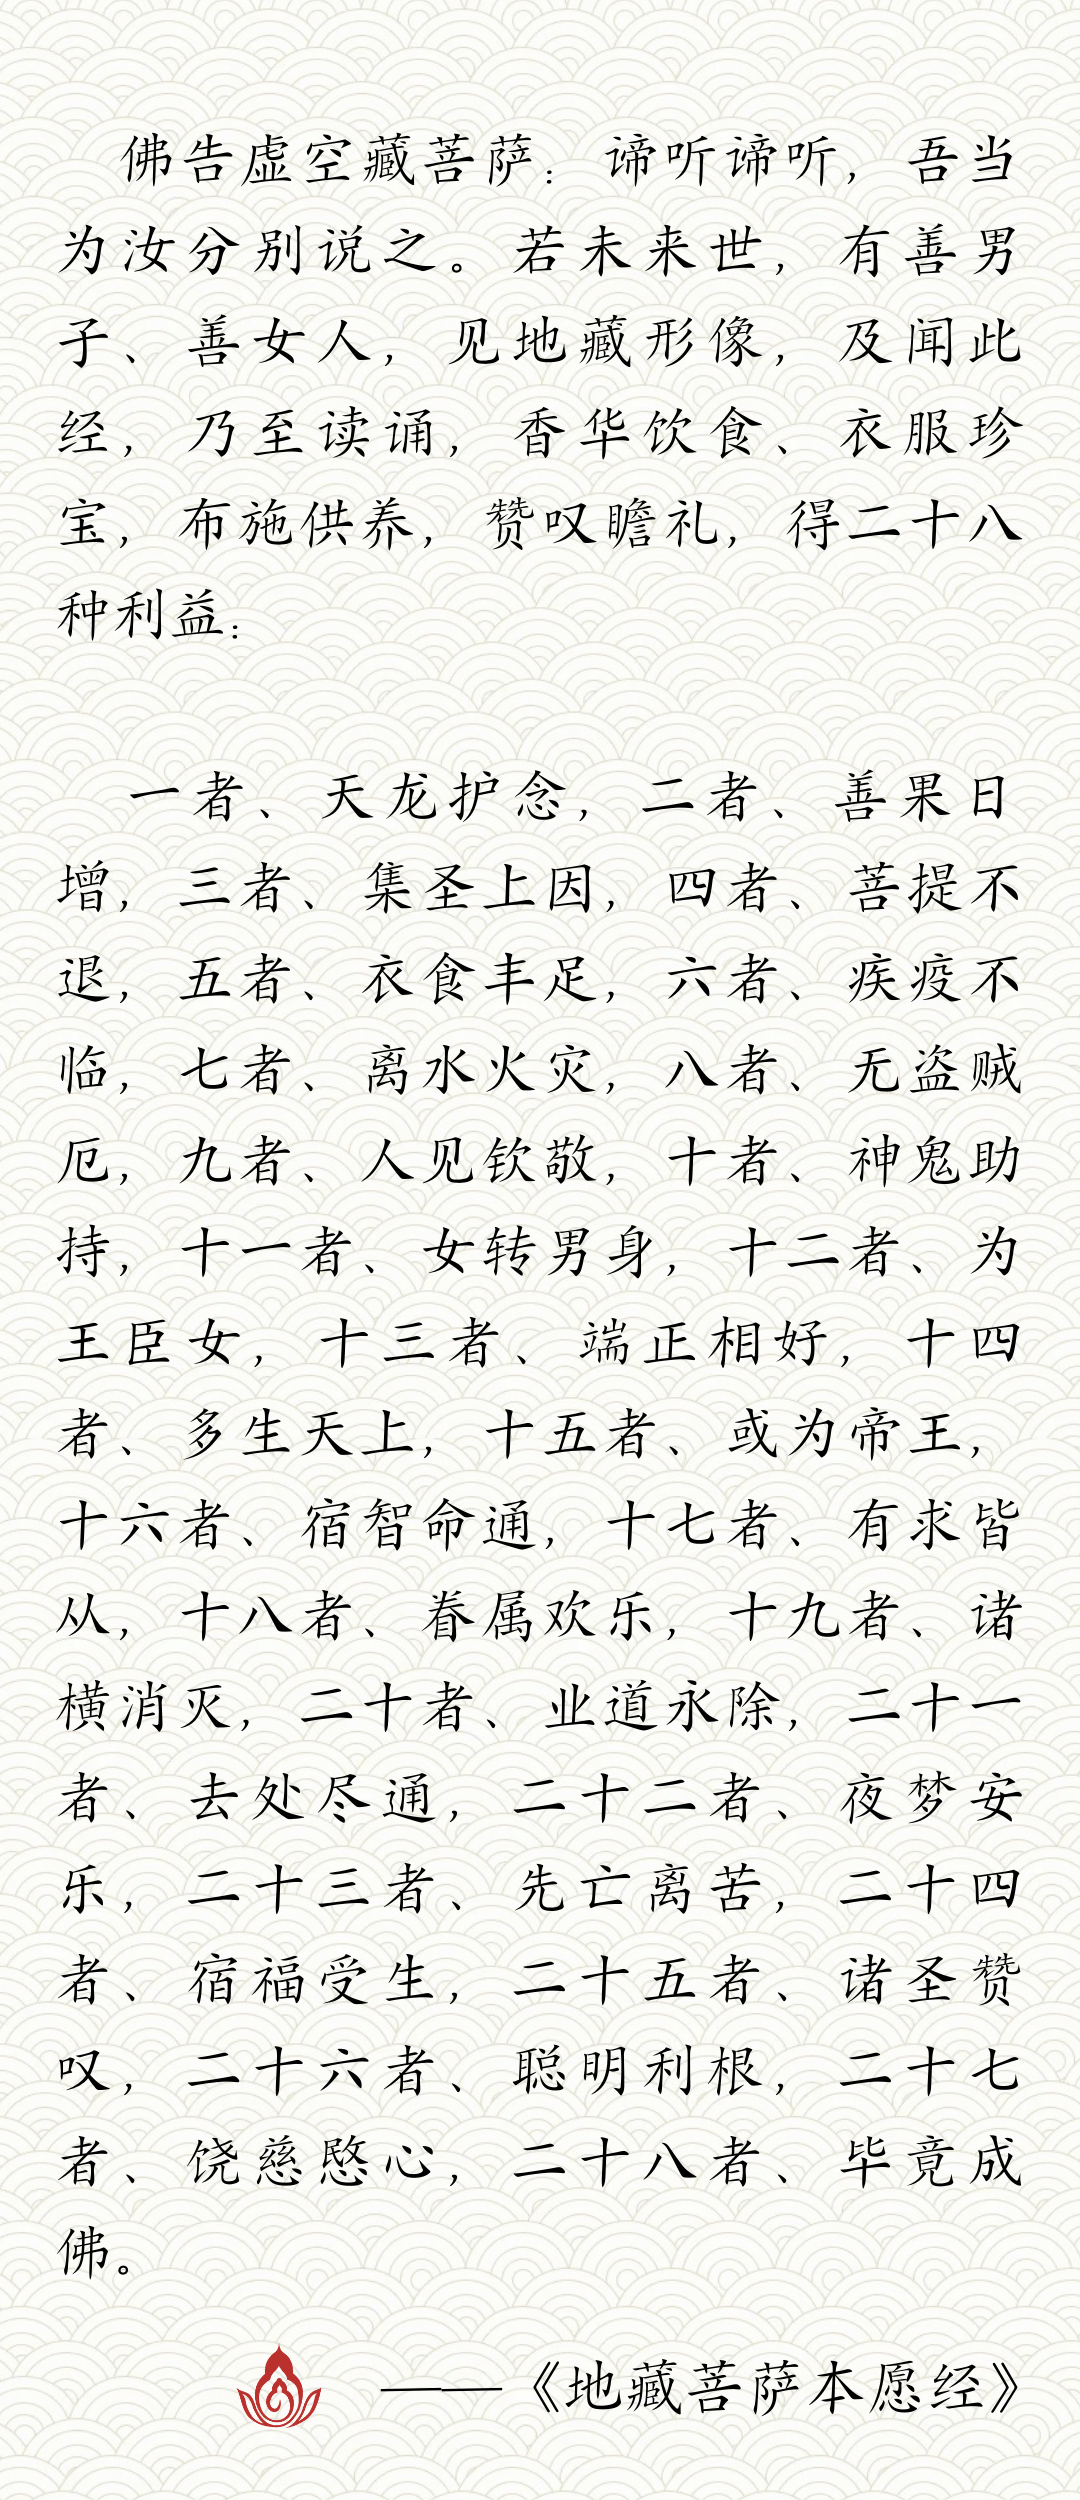 佛告虚空藏菩萨：谛听谛听，吾当
为汝分别说之。若未来世，有善男
子、善女人，见地藏形像，及闻此
经，乃至读诵，香华饮食、衣服珍
宝，布施供养，赞叹瞻礼，得二十八
种利益：
一者、天龙护念，二者、善果日
增，三者、集圣上因，四者、菩提不
退，五者、衣食丰足，六者、疾疫不
临，七者、离水火灾，八者、无盗贼
厄，九者、人见钦敬，十者、神鬼助
持，十一者、女转男身，十二者、为
王臣女，十三者、端正相好，十四
者、多生天上，十五者、或为帝王，
十六者、宿智命通，十七者、有求皆
从，十八者、眷属欢乐，十九者、诸
横消灭，二十者、业道永除，二十一
者、去处尽通，二十二者、夜梦安
乐，二十三者、先亡离苦，二十四
者、宿福受生，二十五者、诸圣赞
叹，二十六者、聪明利根，二十七
者、饶慈愍心，二十八者、毕竟成
佛。
——《地藏菩萨本愿经》